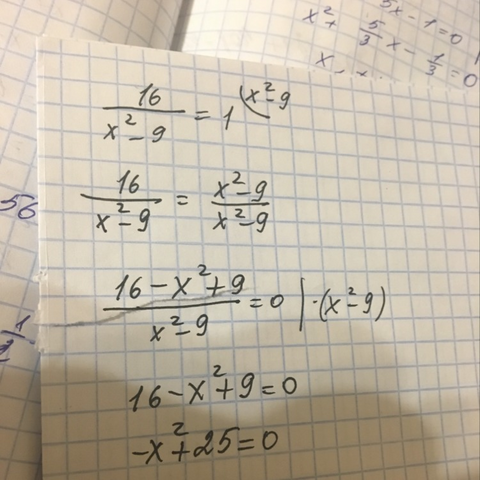 5x - 1 = 0
x² + 5/3 x - 1/3 = 0
16/(x² - 9) = 1 (x² - 9
16/(x² - 9) = (x² - 9)/(x² - 9)
56
(16 - x² + 9)/(x² - 9) = 0 | · (x² - 9)
16 - x² + 9 = 0
-x² + 25 = 0